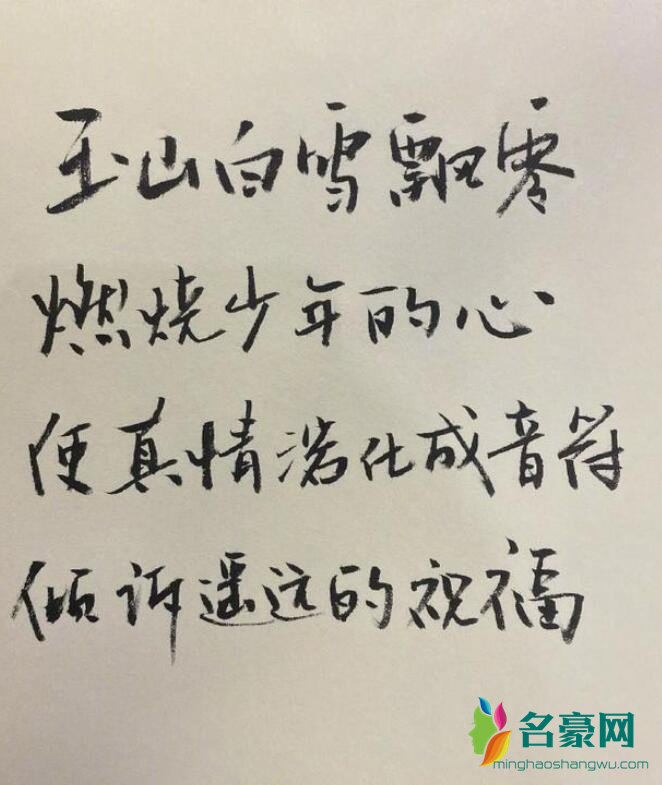 玉山白雪飘零
燃烧少年的心
使真情溶化成音符
倾诉遥远的祝福
名豪网
minghaoshangwu.com